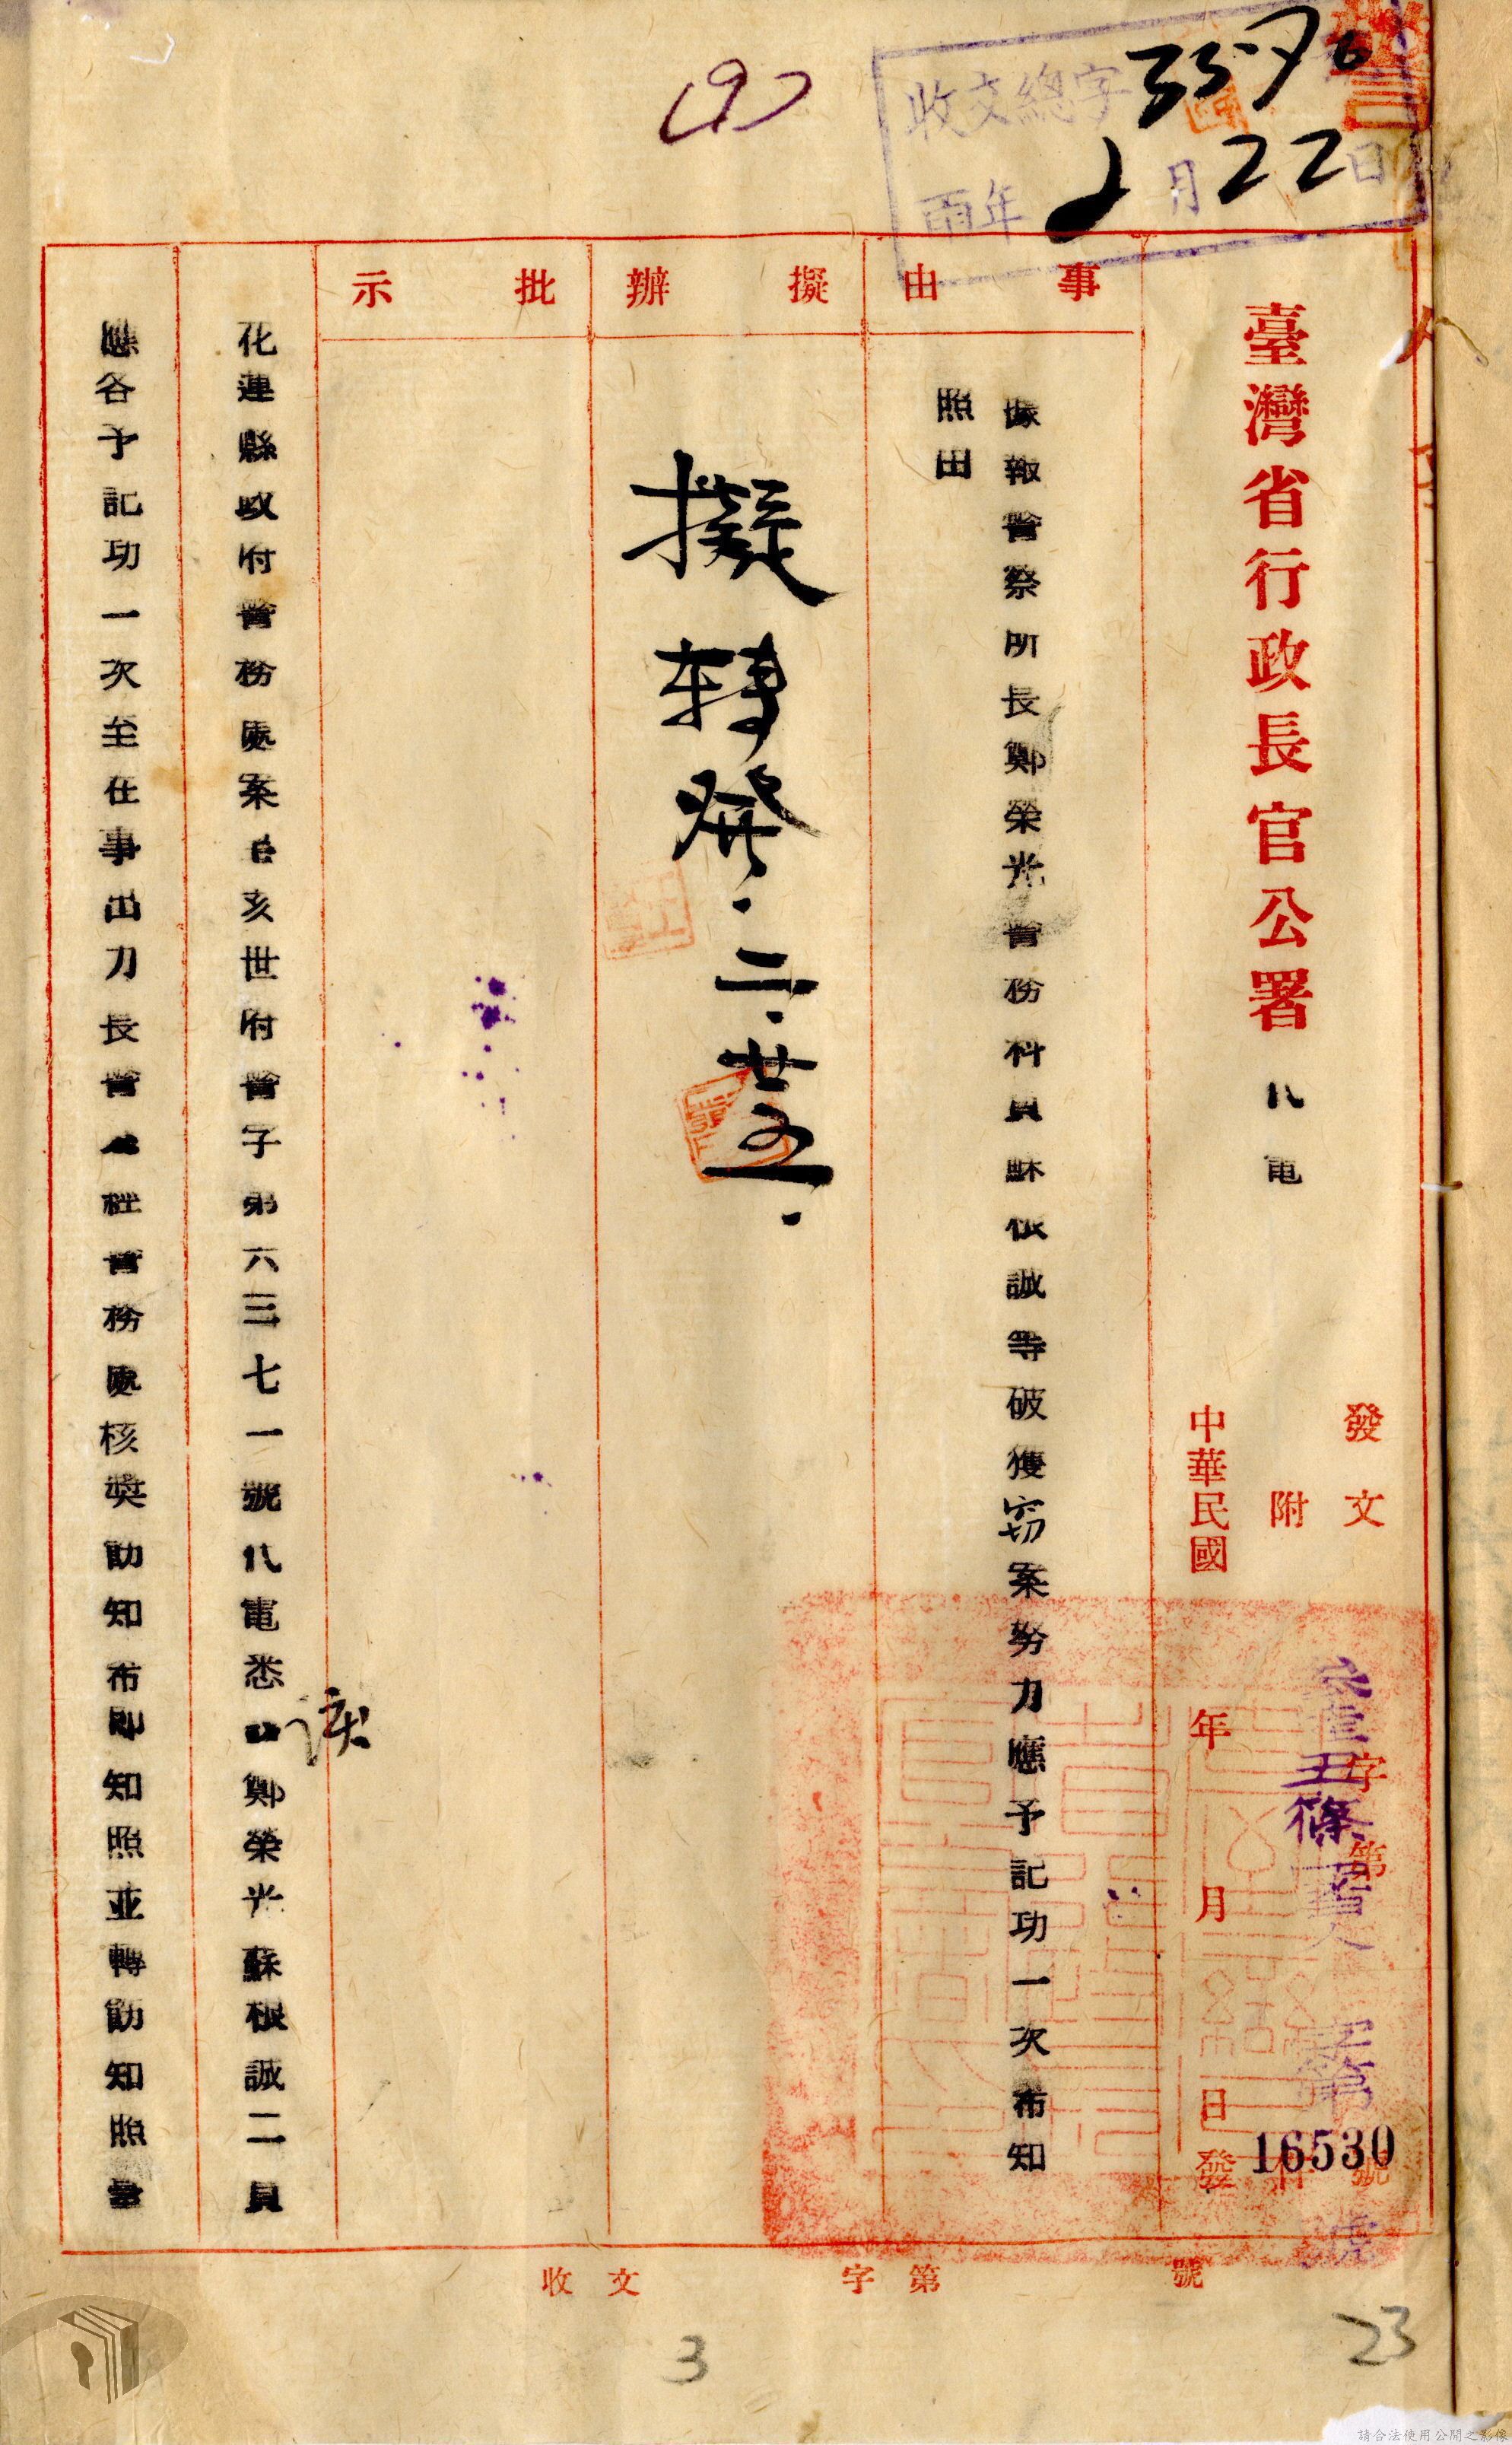 收文總字
年 2 月 22 日
臺灣省行政長官公署 代電
發文 字第 16530 號
附 件
中華民國 年 月 日 發
事由
據報警察所長鄭榮光警務科員蘇根誠等破獲竊案努力應予記功一次希知
照由
擬辦
擬轉發.二.廿五.
批示
花蓮縣政府警務處案 亥世府警子第六三七一號代電悉 該鄭榮光蘇根誠二員
應各予記功一次至在事出力長警 經警務處核獎飭知希即知照並轉飭知照
收文 字第 號
3
23
請合法使用公開之影像